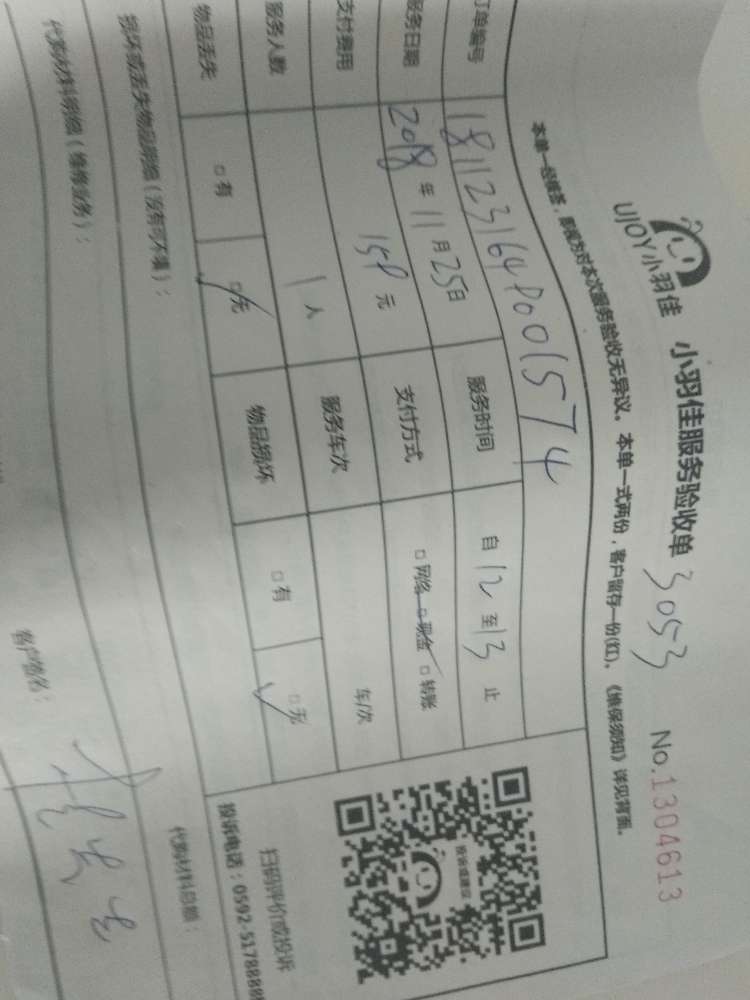 UJOY小羽佳 小羽佳服务验收单 3053 No.1304613
本单一经接签,即视为对本次服务验收无异议。本单一式两份,客户留存一份(红)。《维保须知》详见背面。
订单编号
服务日期 2018年11月25日 服务时间 自12至13止
支付费用 158元 支付方式 □网络 □现金 □转账
服务人数 1人 服务车次 车/次
物品丢失 □有 □无 物品损坏 □有 □无
扫码评价或投诉
损坏或丢失物品明细(没有可不填):
代购材料明细(维修业务): 代购材料总额:
客户签名: